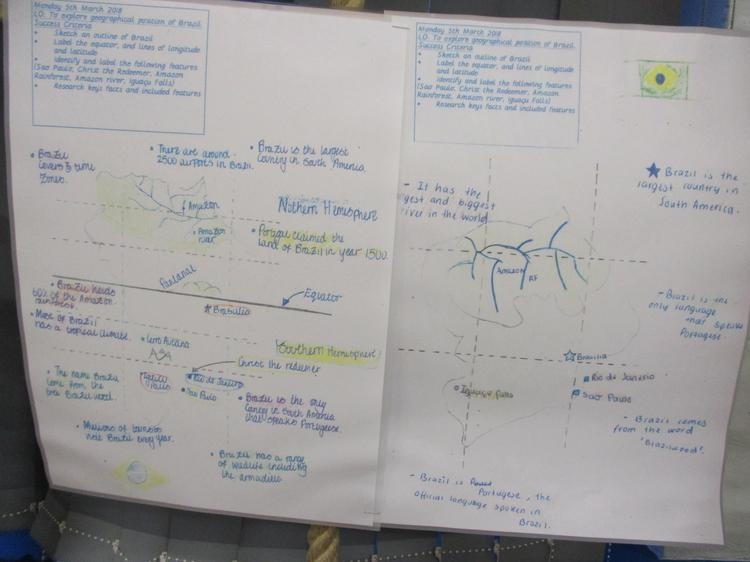 Monday 5th March 2018
LO: To explore geographical position of Brazil.
Success Criteria
• Sketch an outline of Brazil
• Label the equator, and lines of longitude
and latitude
• Identify and label the following features
(Sao Paulo, Christ the Redeemer, Amazon
Rainforest, Amazon river, Iguaçu Falls)
• Research keys facts and included features
• Brazil
covers
time
zones.
• There are around
2500 airports in Brazil.
• Brazil is the largest
country in South America.
Amazon
Nothern Hemisphere
• Amazon
river
• Portugal claimed the
land of Brazil in year 1500.
Pantanal
• Brazil holds
60% of the Amazon
rainforest.
Equator
Brabillia
• Most of Brazil
has a tropical climate.
Southern Hemisphere
Christ the redemer
• The name Brazil
come from the
tree Brazil wood.
Rio de Janiro
Sao Paulo
• Brazil is the only
Country in South America
that speaks Portuguese.
• Millions of tourists
visit Brazil every year.
• Brazil has a range
of wildlife including
the armadillo
Monday 5th March 2018
LO: To explore geographical position of Brazil.
Success Criteria
• Sketch an outline of Brazil
• Label the equator, and lines of longitude
and latitude
• Identify and label the following features
(Sao Paulo, Christ the Redeemer, Amazon
Rainforest, Amazon river, Iguaçu Falls)
• Research keys facts and included features
Brazil is the
largest country in
South America.
- It has the
gest and biggest
river in the world
Amazon RF
- Brazil is the
only language
that speaks
Portugese.
Brasilia
Rio de Janério
Sao Paulo
Iguaçu falls
- Brazil comes
from the word
"Brazilwood".
- Brazil is
Portugese, the
official language spoken in
Brazil.